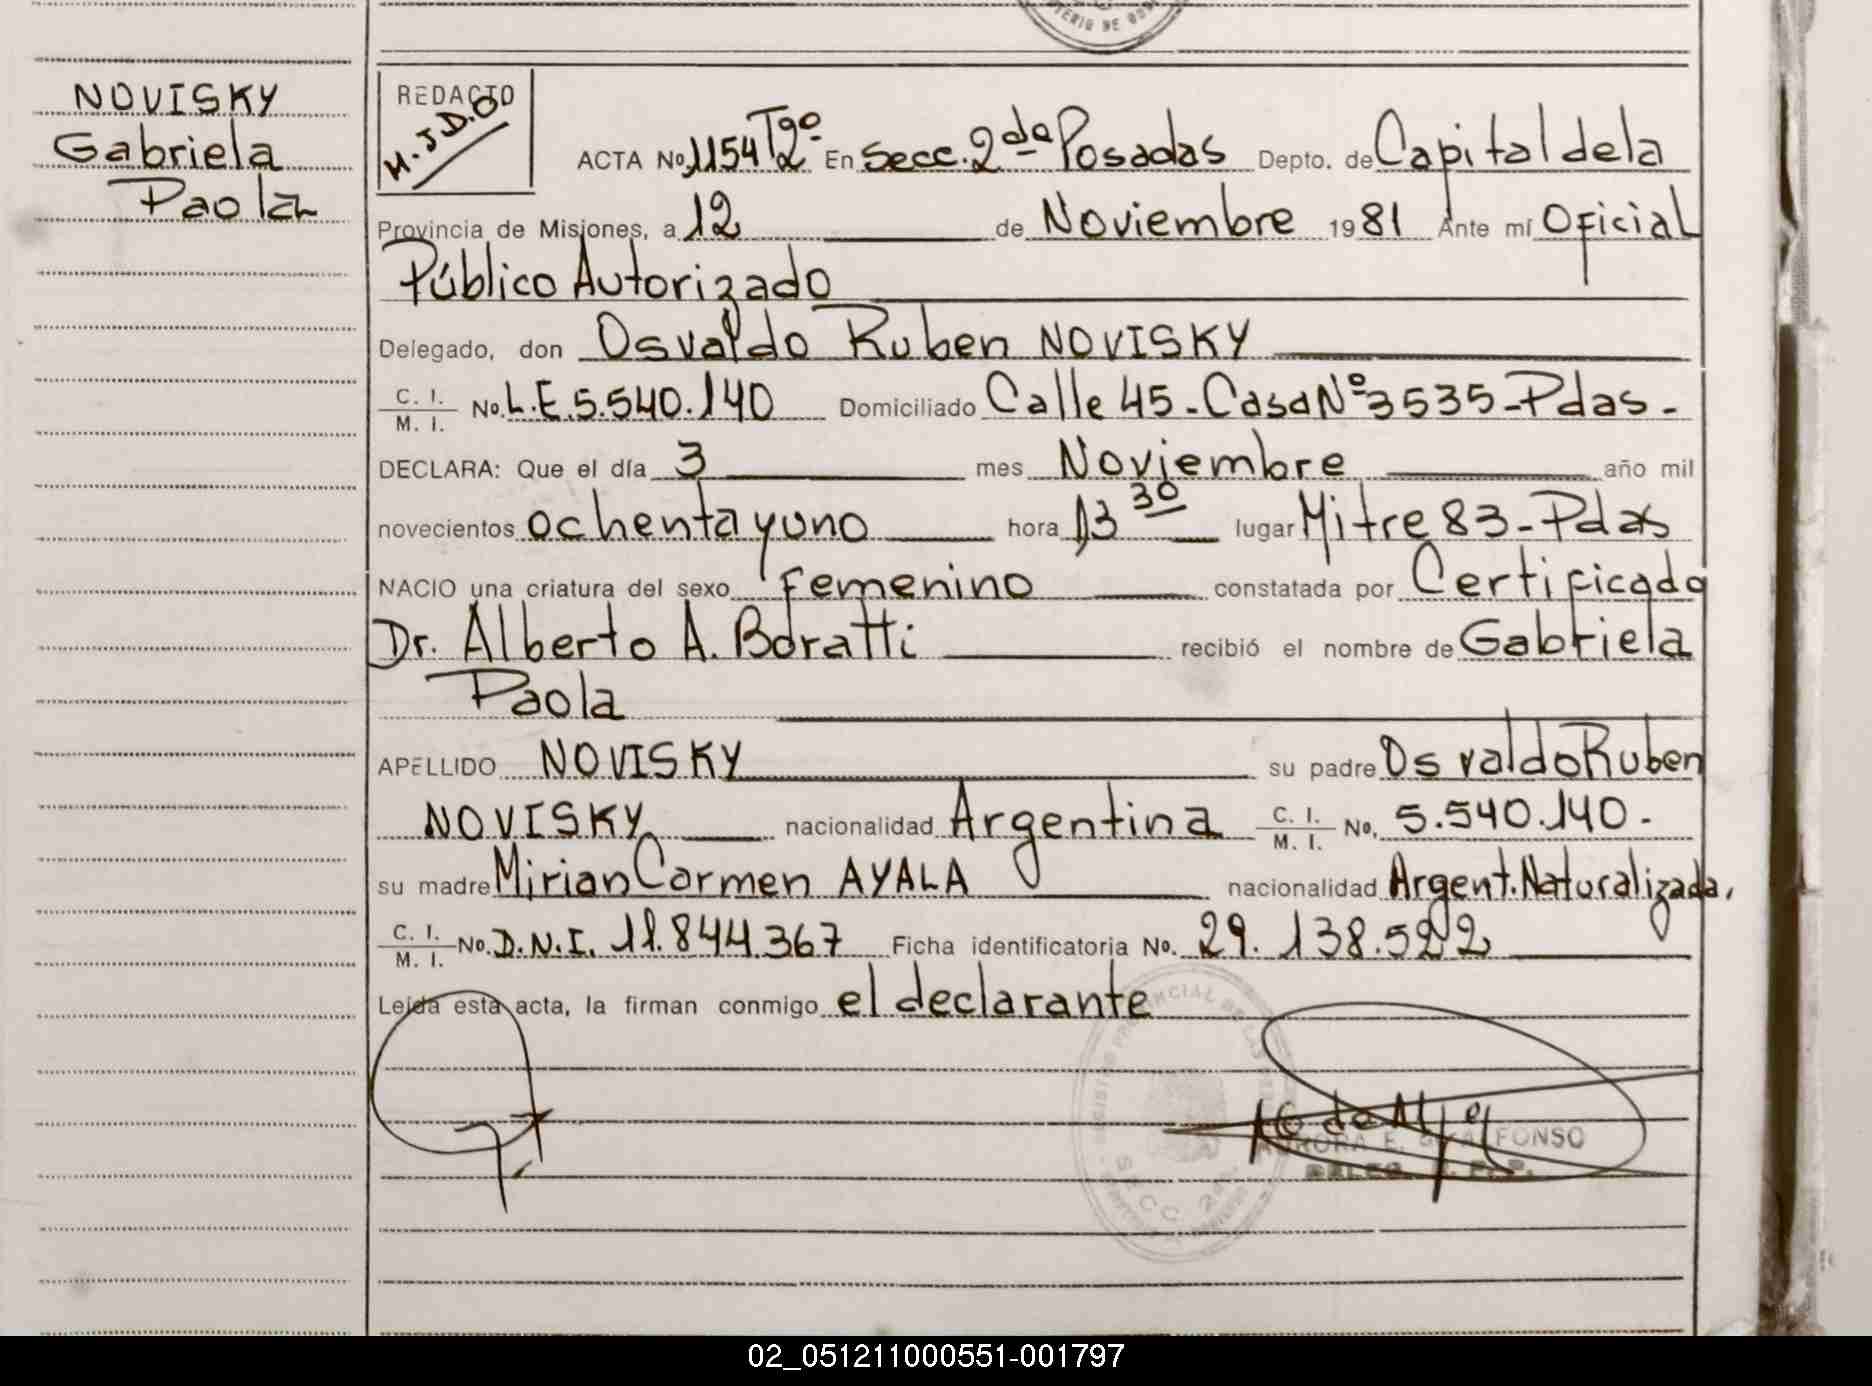 NOVISKY
Gabriela
Paola
REDACTO
M.J.D.O
ACTA No 1154 Tº2º En Secc. 2da Posadas Depto. de Capital de la
Provincia de Misiones, a 12 de Noviembre 1981 Ante mí Oficial
Público Autorizado
Delegado, don Osvaldo Ruben NOVISKY
C. I.
M. I. No. L.E. 5.540.140 Domiciliado Calle 45 - Casa Nº 3535 - Pdas -
DECLARA: Que el día 3 mes Noviembre año mil
novecientos ochenta y uno hora 13 30 lugar Mitre 83 - Pdas
NACIO una criatura del sexo femenino constatada por Certificado
Dr. Alberto A. Boratti recibió el nombre de Gabriela
Paola
APELLIDO NOVISKY su padre Osvaldo Ruben
NOVISKY nacionalidad Argentina C. I.
M. I. No. 5.540.140 -
su madre Mirian Carmen AYALA nacionalidad Argent. Naturalizada.
C. I.
M. I. No. D.N.I. 11.844.367 Ficha identificatoria No. 29.138.522
Leída esta acta, la firman conmigo el declarante
SECC. 2da.
AURORA E. DE ALFONSO
02_051211000551-001797